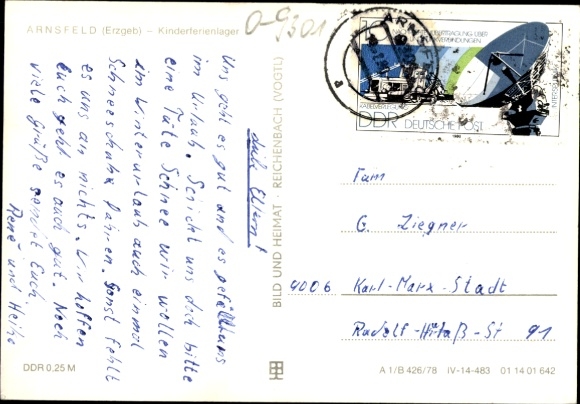 ARNSFELD (Erzgeb) – Kinderferienlager
0-9301
Liebe Eltern!
Uns geht es gut und es gefällt uns
im Urlaub. Schickt uns doch bitte
eine Tüte Schnee wir wollen
im Winterurlaub auch einmal
Schneeschuhe fahren. Sonst fehlt
es uns an nichts. Wir hoffen
Euch geht es auch gut. Noch
viele Grüße sendet Euch
René und Heike
BILD UND HEIMAT · REICHENBACH (VOGTL)
10
DDR DEUTSCHE POST
Fam
G. Ziegner
9006 Karl-Marx-Stadt
St 91
DDR 0.25 M
A 1/B 426/78 IV-14-483 01 14 01 642